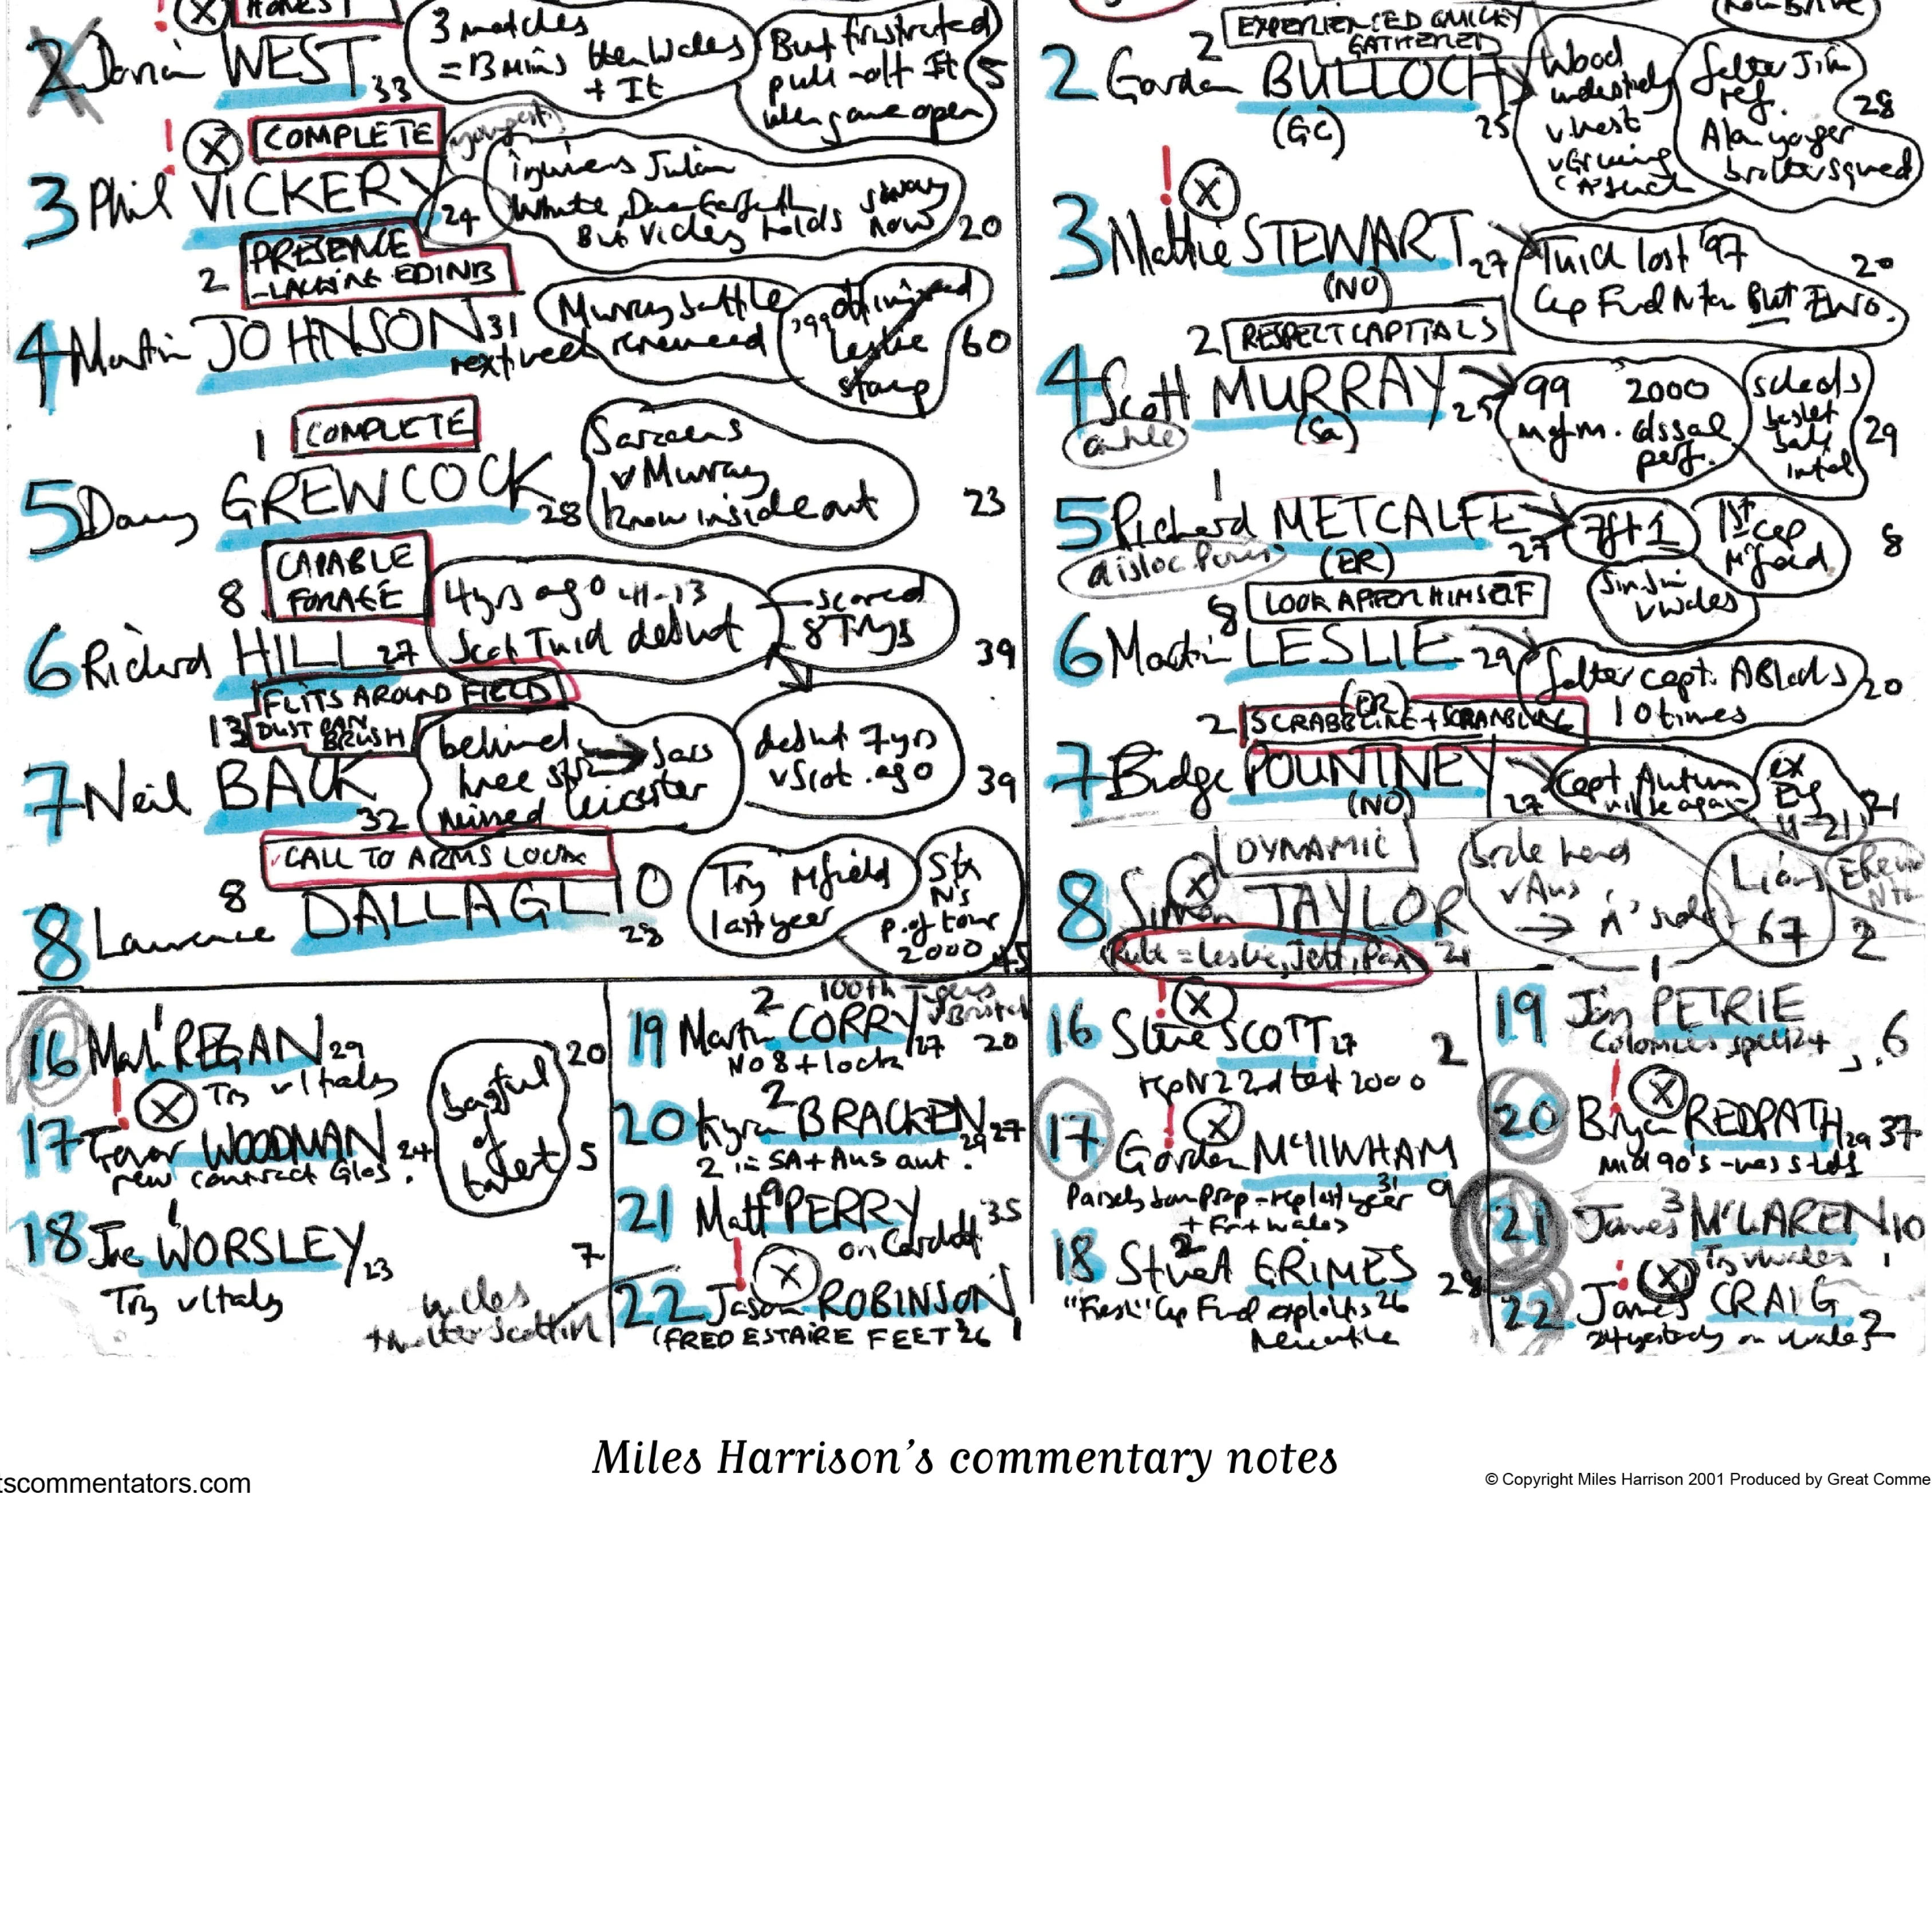 HONEST
2 Dorian WEST 33
3 matches
= 13 mins then Wales
+ It
But frustrated
pull-off It
when game open
5
COMPLETE
youngest
3 Phil VICKERY 24
injuries Julian
White, Darren Garforth
But Vickery holds sway
now
20
PRESENCE
- LACKING EDINB
2
4 Martin JOHNSON 31
next week
Murray battle
renewed
'99
Leslie
stamp
60
COMPLETE
1
5 Danny GREWCOCK 28
Saracens
v Murray
know inside out
23
CAPABLE
FORAGE
8
6 Richard HILL 27
4 yrs ago 41-13
Scot Twick debut
- scored
8 Trys
39
FLITS AROUND FIELD
DUST PAN
BRUSH
13
7 Neil BACK 32
behind
→ Sars
missed Leicester
debut 7yrs
v Scot. ago
39
CALL TO ARMS
8
8 Lawrence DALLAGLIO 28
Try M'field
last year
Six
N's
p. of tour
2000
45
16 Mark REGAN 29
Try v Italy
20
17 Trevor WOODMAN 24
new contract Glos.
bagful
of
talent
5
1
18 Joe WORSLEY 23
Try v Italy
7
2
100th Tigers
v Bristol
19 Martin CORRY 27
No 8 + lock
20
2
20 Kyran BRACKEN 29 27
2 in SA + Aus aut.
9
21 Matt PERRY 35
on Cardiff
22 Jason ROBINSON
(FRED ESTAIRE FEET 26 1
EXPERIENCED QUICKLY
GATHERED
2
2 Gordon BULLOCH 25
(GC)
Wood
v West
v Greening
father Jim
ref.
Alan younger
brother squad
28
3 Mattie STEWART 27
(NO)
Twick lost '97
Cup Final N'ton But Euro.
20
2 RESPECT CAPTIALS
4 Scott MURRAY 25
(Sa)
ankle
99
m of m.
2000
dissal
perf.
schools
basket
ball
intal
29
1
5 Richard METCALFE 27
(ER)
7ft 1
1st cap
M'field
8
8 LOOK AFTER HIMSELF
Sin bin
v Wales
6 Martin LESLIE 29
(ER)
father capt. ABlacks
10 times
20
2 SCRABBLING + SCRAMBLING
7 Budge POUNTNEY 27
(NO)
Capt Autumn
will be again
ex
Eng
U-21
21
1 DYNAMIC
8 Simon TAYLOR 21
broke hand
v Aus
→ 'A' side
Lions
67
2
16 Steve SCOTT 27
rep NZ 2nd test 2000
2
17 Gordon McIIWHAM 31
rep last year
+ Fr + Wales
9
2
18 Stuart GRIMES 26
Cup Final exploits
Newcastle
28
1
19 Jon PETRIE
24
6
20 Bryan REDPATH 29 37
mid 90's
3
21 James McLAREN 10
Try v Wales
22 James CRAIG 2
24 yesterday
Miles Harrison's commentary notes
tscommentators.com
© Copyright Miles Harrison 2001 Produced by Great Comme